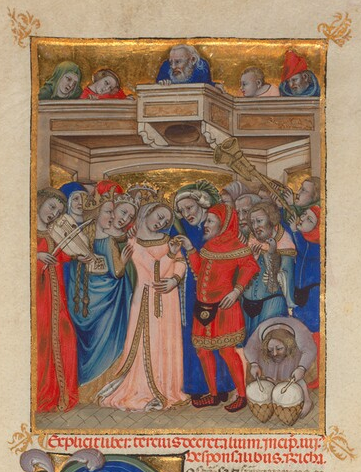 Explicit liber tercius decretalium. incip. iiij.
desponsalibus. Ruƀca.